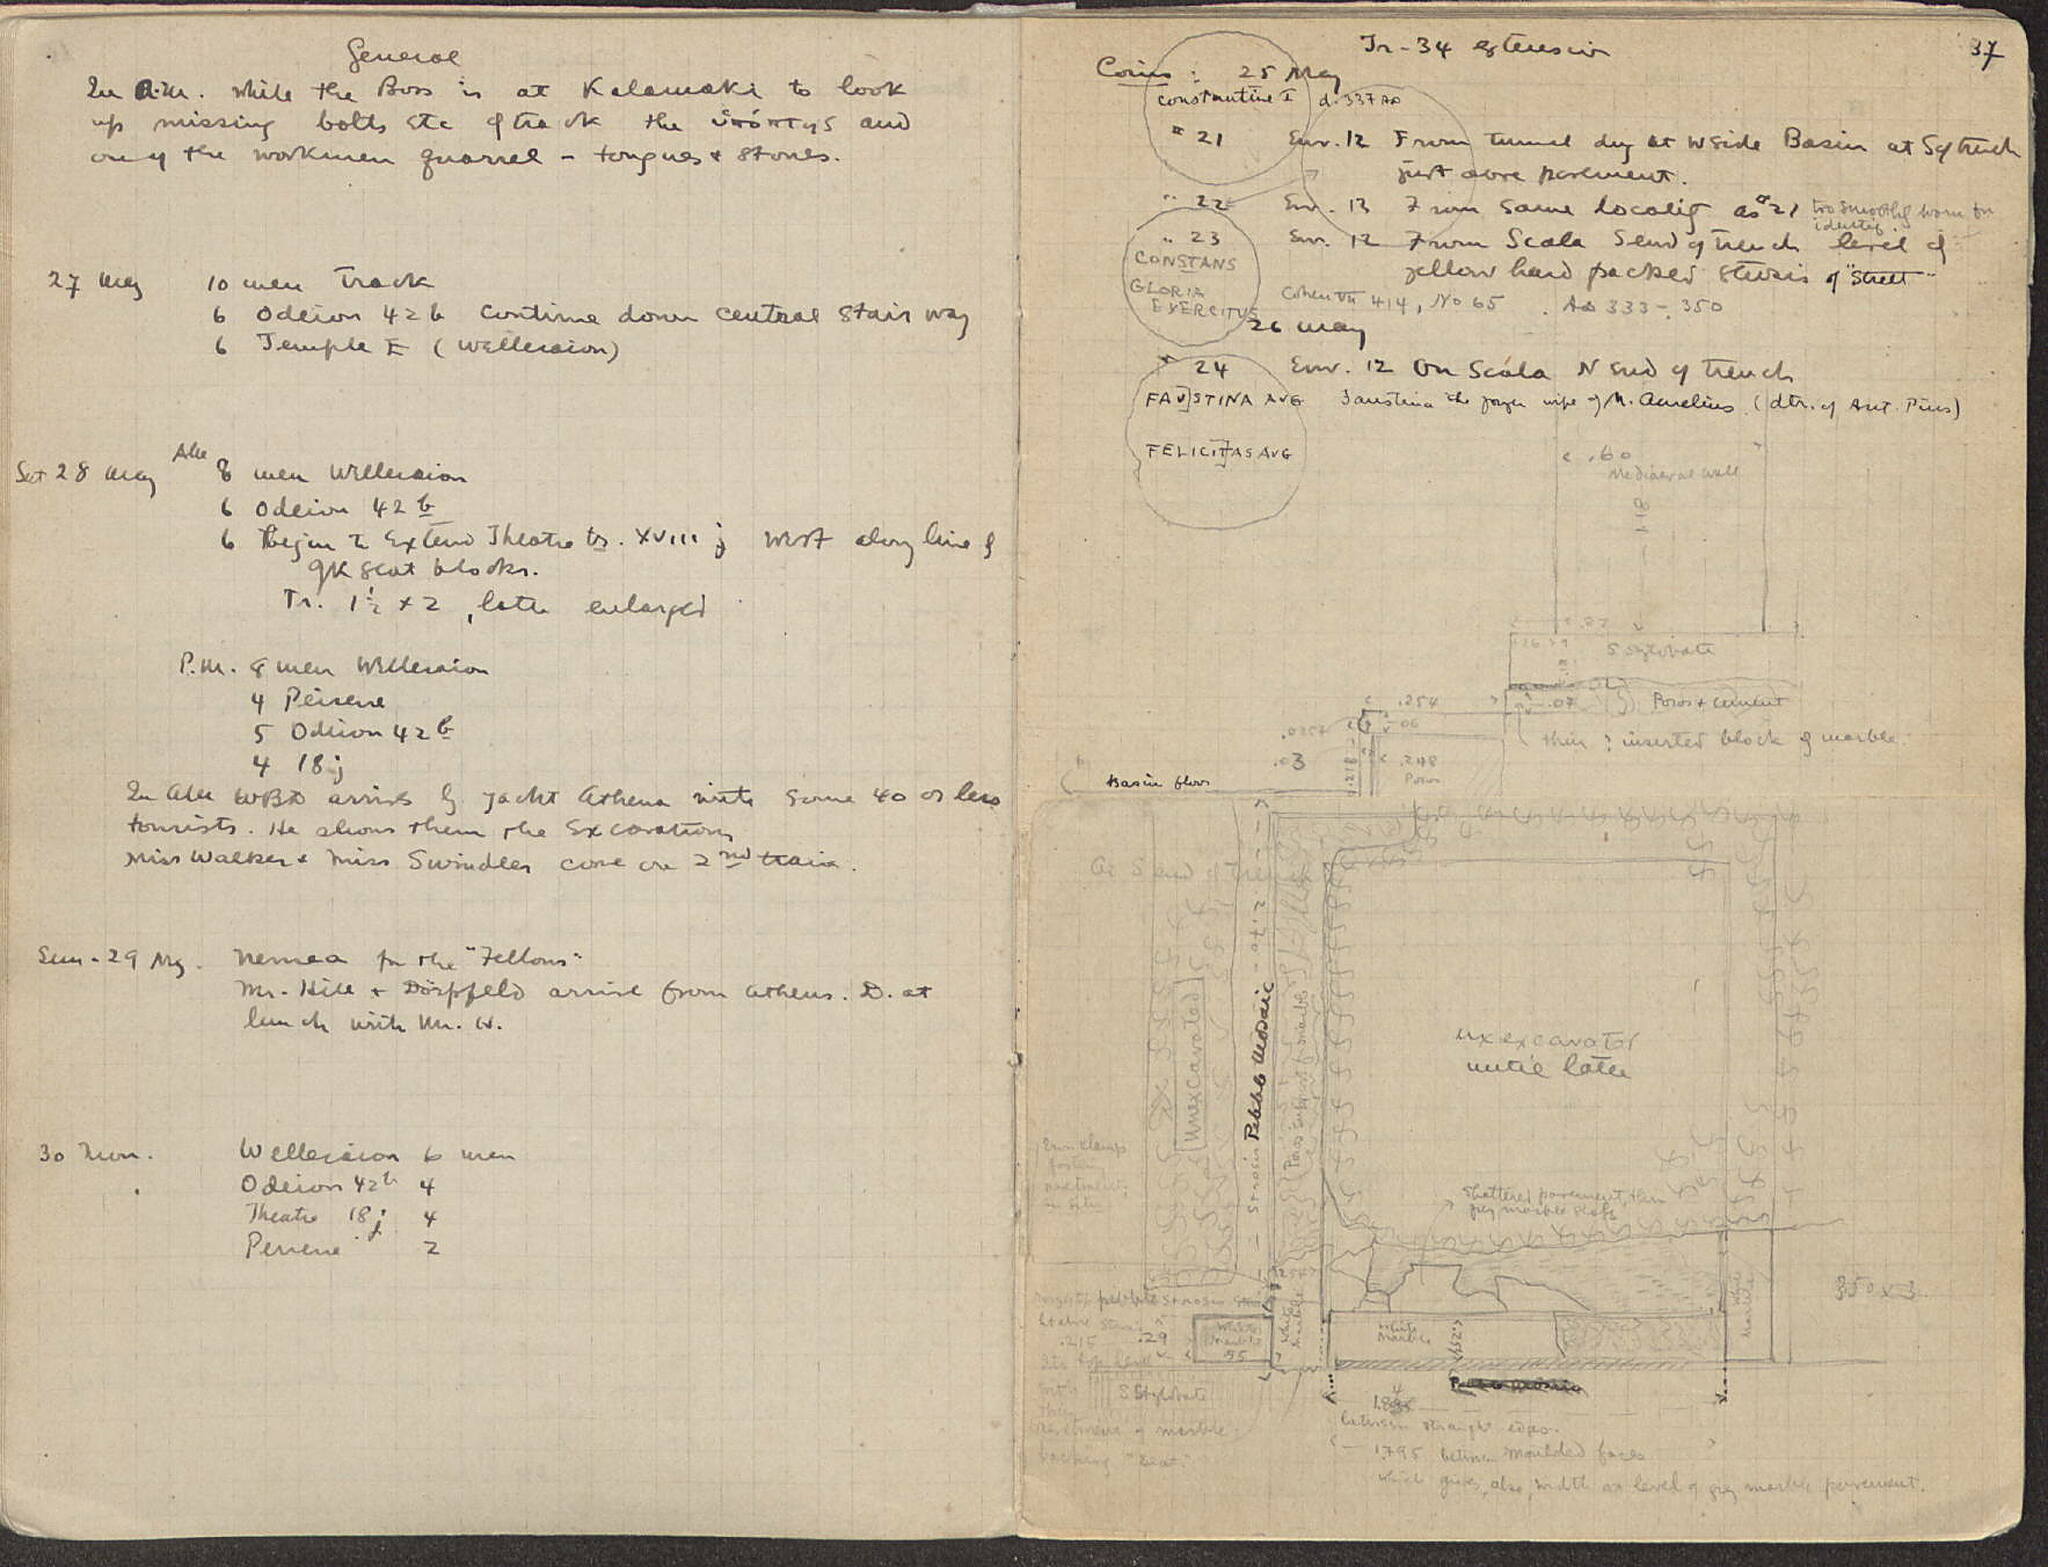 General
In A.M. while the Boss is at Kalamaki to look
up missing bolts etc of track the ὑπόπτης and
one of the workmen quarrel - tongues + stones.
27 May 10 men Track
6 Odeion 42 b Continue down central stair way
6 Temple E (Welleraion)
Sat 28 May AM 8 men Welleraion
6 Odeion 42 b
6 Begin to Extend Theatre tr. XVIII j West along line of
GK seat blocks.
Tr. 1½ x 2, later enlarged
P.M. 8 men Welleraion
4 Peirene
5 Odeion 42 b
4 18 j
In AM WBD arrives by yacht Athena with some 40 or less
tourists. He shows them the Excavations
Miss Walker + Miss Swindler come on 2nd train.
Sun - 29 My. Nemea for the "Fellows"
Mr. Hill + Dörpfeld arrive from Athens. D. at
lunch with Mr. H.
30 Mon. Welleraion 6 men
Odeion 42 b 4
Theatre 18 j 4
Peirene 2
Tr - 34 extension 37
Coins : 25 May
Constantine I d. 337 AD
# 21 Env. 12 From tunnel dug at W side Basin at S of trench
just above pavement.
" 22 Env. 13 From same locality as #21 too smoothly worn for
identif.
" 23 Env. 12 From Scala S end of trench level of
yellow hard packed stosis of "Street"
CONSTANS
GLORIA
EXERCITUS
Cohen VII 414, No 65 . AD 333 - 350
26 May
" 24 Env. 12 On Scala N end of trench
FAUSTINA AVG Faustina the younger wife of M. Aurelius. (dtr. of Ant. Pius)
FELICITAS AVG
.60
Mediaeval wall
.81
.82
Stylobate
.254
.07
Poros + cement
.06
.0257
thin ; inserted block of marble.
.03
.218
.248
Poros
Basin floor
At S end of Trench
2.70
Unexcavated
Strosis Pebble Mosaic
Poros support of marble
unexcavated
until later
Iron clamps
in situ
Shattered pavement, thin
grey marble slabs
350 x 3
.254
pebble strosis
.215
.29
White
Marble
.55
White
Marble
White
Marble
.254
Marble
Stylobate
revetment of marble
backing "seat"
1.84
between straight edges.
1.795 between moulded faces
which gives, also, width at level of grey marble pavement.